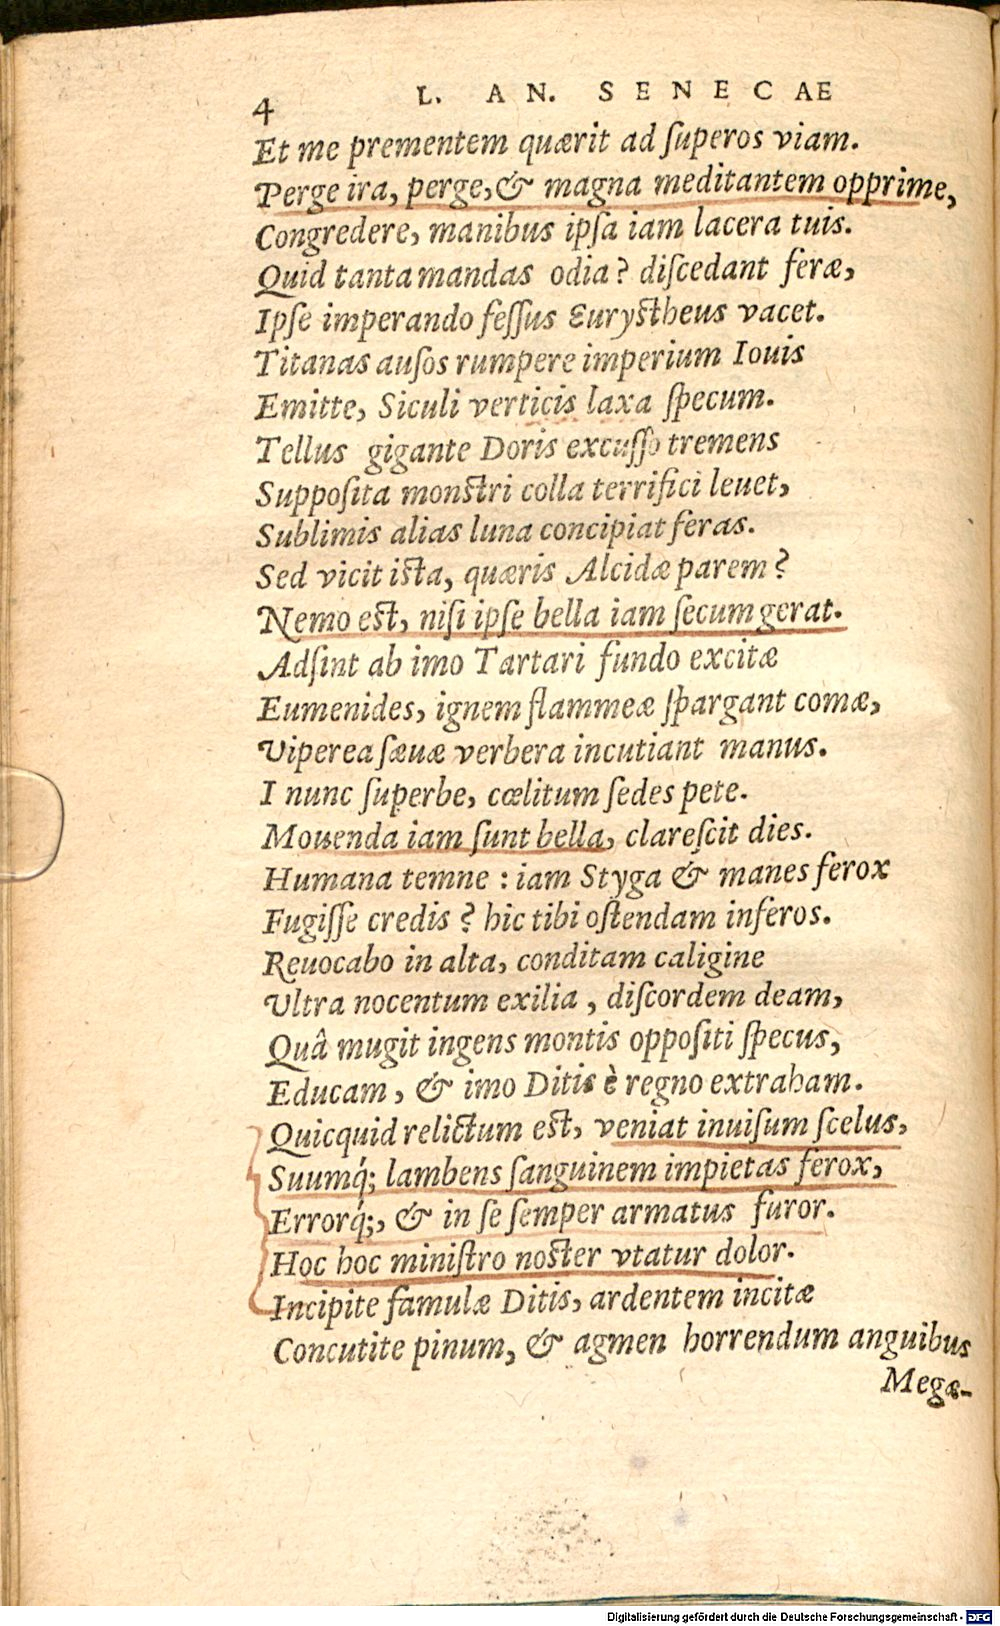 4 L. AN. SENECAE
Et me prementem quærit ad ſuperos viam.
Perge ira, perge, & magna meditantem opprime,
Congredere, manibus ipſa iam lacera tuis.
Quid tanta mandas odia? diſcedant feræ,
Ipſe imperando feſſus Euryſtheus vacet.
Titanas auſos rumpere imperium Iouis
Emitte, Siculi verticis laxa ſpecum.
Tellus gigante Doris excuſſo tremens
Suppoſita monſtri colla terrifici leuet,
Sublimis alias luna concipiat feras.
Sed vicit iſta, quæris Alcidæ parem?
Nemo eſt, niſi ipſe bella iam ſecum gerat.
Adſint ab imo Tartari fundo excitæ
Eumenides, ignem flammeæ ſpargant comæ,
Viperea ſæuæ verbera incutiant manus.
I nunc ſuperbe, cœlitum ſedes pete.
Mouenda iam ſunt bella, clareſcit dies.
Humana temne : iam Styga & manes ferox
Fugiſſe credis? hic tibi oſtendam inferos.
Reuocabo in alta, conditam caligine
Vltra nocentum exilia, diſcordem deam,
Quâ mugit ingens montis oppoſiti ſpecus,
Educam, & imo Ditis è regno extraham.
Quicquid relictum eſt, veniat inuiſum ſcelus,
Suumq́; lambens ſanguinem impietas ferox,
Errorq́;, & in ſe ſemper armatus furor.
Hoc hoc miniſtro noſter vtatur dolor.
Incipite famulæ Ditis, ardentem incitæ
Concutite pinum, & agmen horrendum anguibus
Megæ-
Digitalisierung gefördert durch die Deutsche Forschungsgemeinschaft - DFG